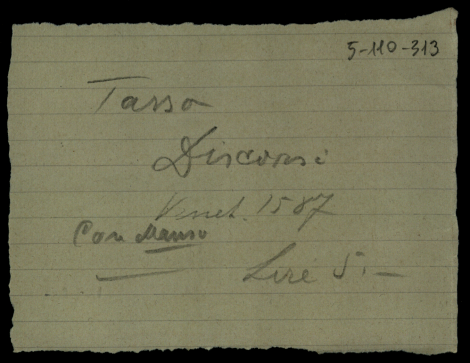 5-110-313
Tasso
Discorsi
Venet. 1587
Con Manso
Lire 5.-